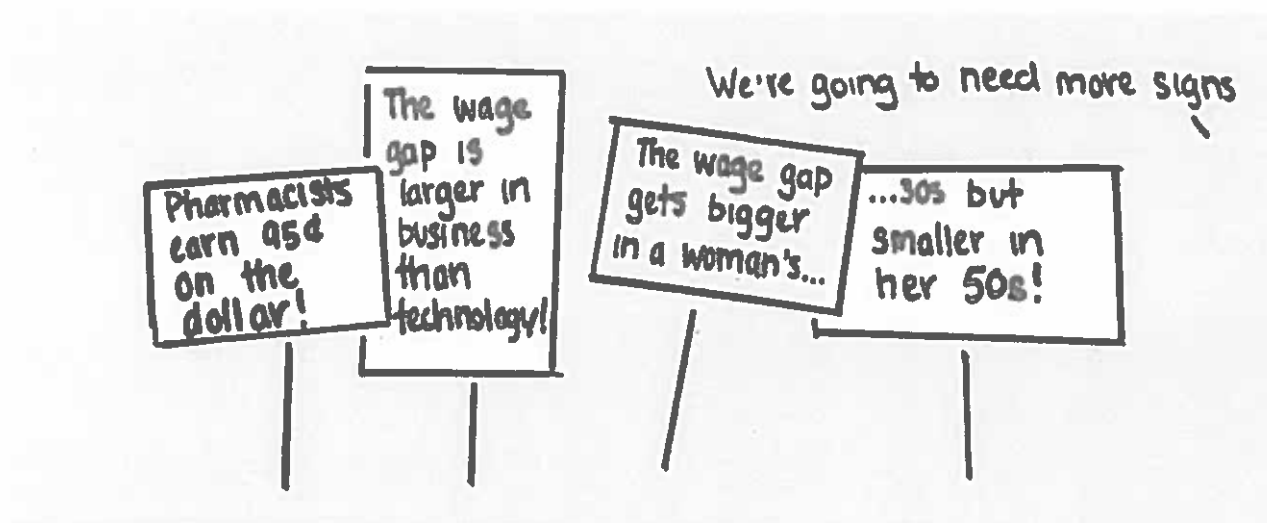 We're going to need more signs
Pharmacists
earn 95¢
on the
dollar!
The wage
gap is
larger in
business
than
technology!
The wage gap
gets bigger
in a woman's...
...30s but
smaller in
her 50s!